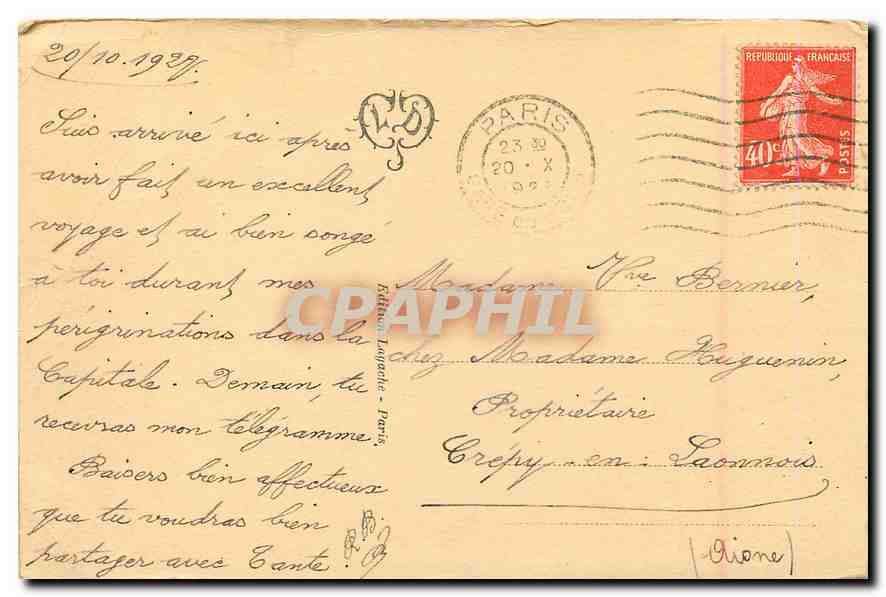 20/10.1927.
Suis arrivé ici après
avoir fait un excellent
voyage et ai bien songé
à toi durant mes
pérégrinations dans la
Capitale. Demain, tu
recevras mon télégramme.
Baisers bien affectueux
que tu voudras bien
partager avec Tante.
LD
Edition Lagache - Paris.
PARIS
23 30
20 · X
REPUBLIQUE FRANÇAISE
40c
POSTES
Madame Vve Bernier,
chez Madame Huguenin,
Propriétaire
Crépy-en-Laonnois
(Aisne)
CPAPHIL